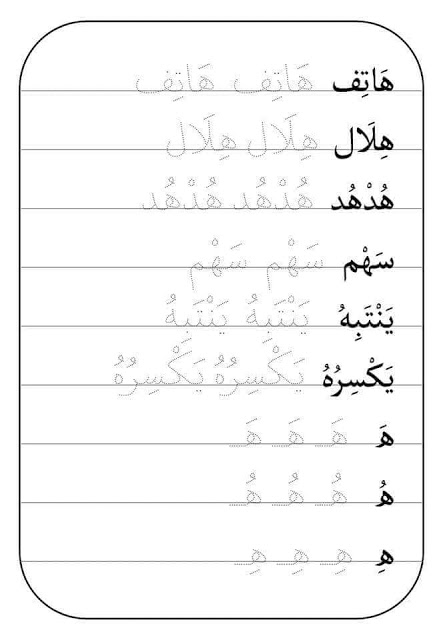 هَاتِف هَاتِف هَاتِف
هِلَال هِلَال هِلَال
هُدْهُد هُدْهُد هُدْهُد
سَهْم سَهْم سَهْم
يَنْتَبِهُ يَنْتَبِهُ يَنْتَبِهُ
يَكْسِرُهُ يَكْسِرُهُ يَكْسِرُهُ
هَ هَ هَ هَ
هُ هُ هُ هُ
هِ هِ هِ هِ